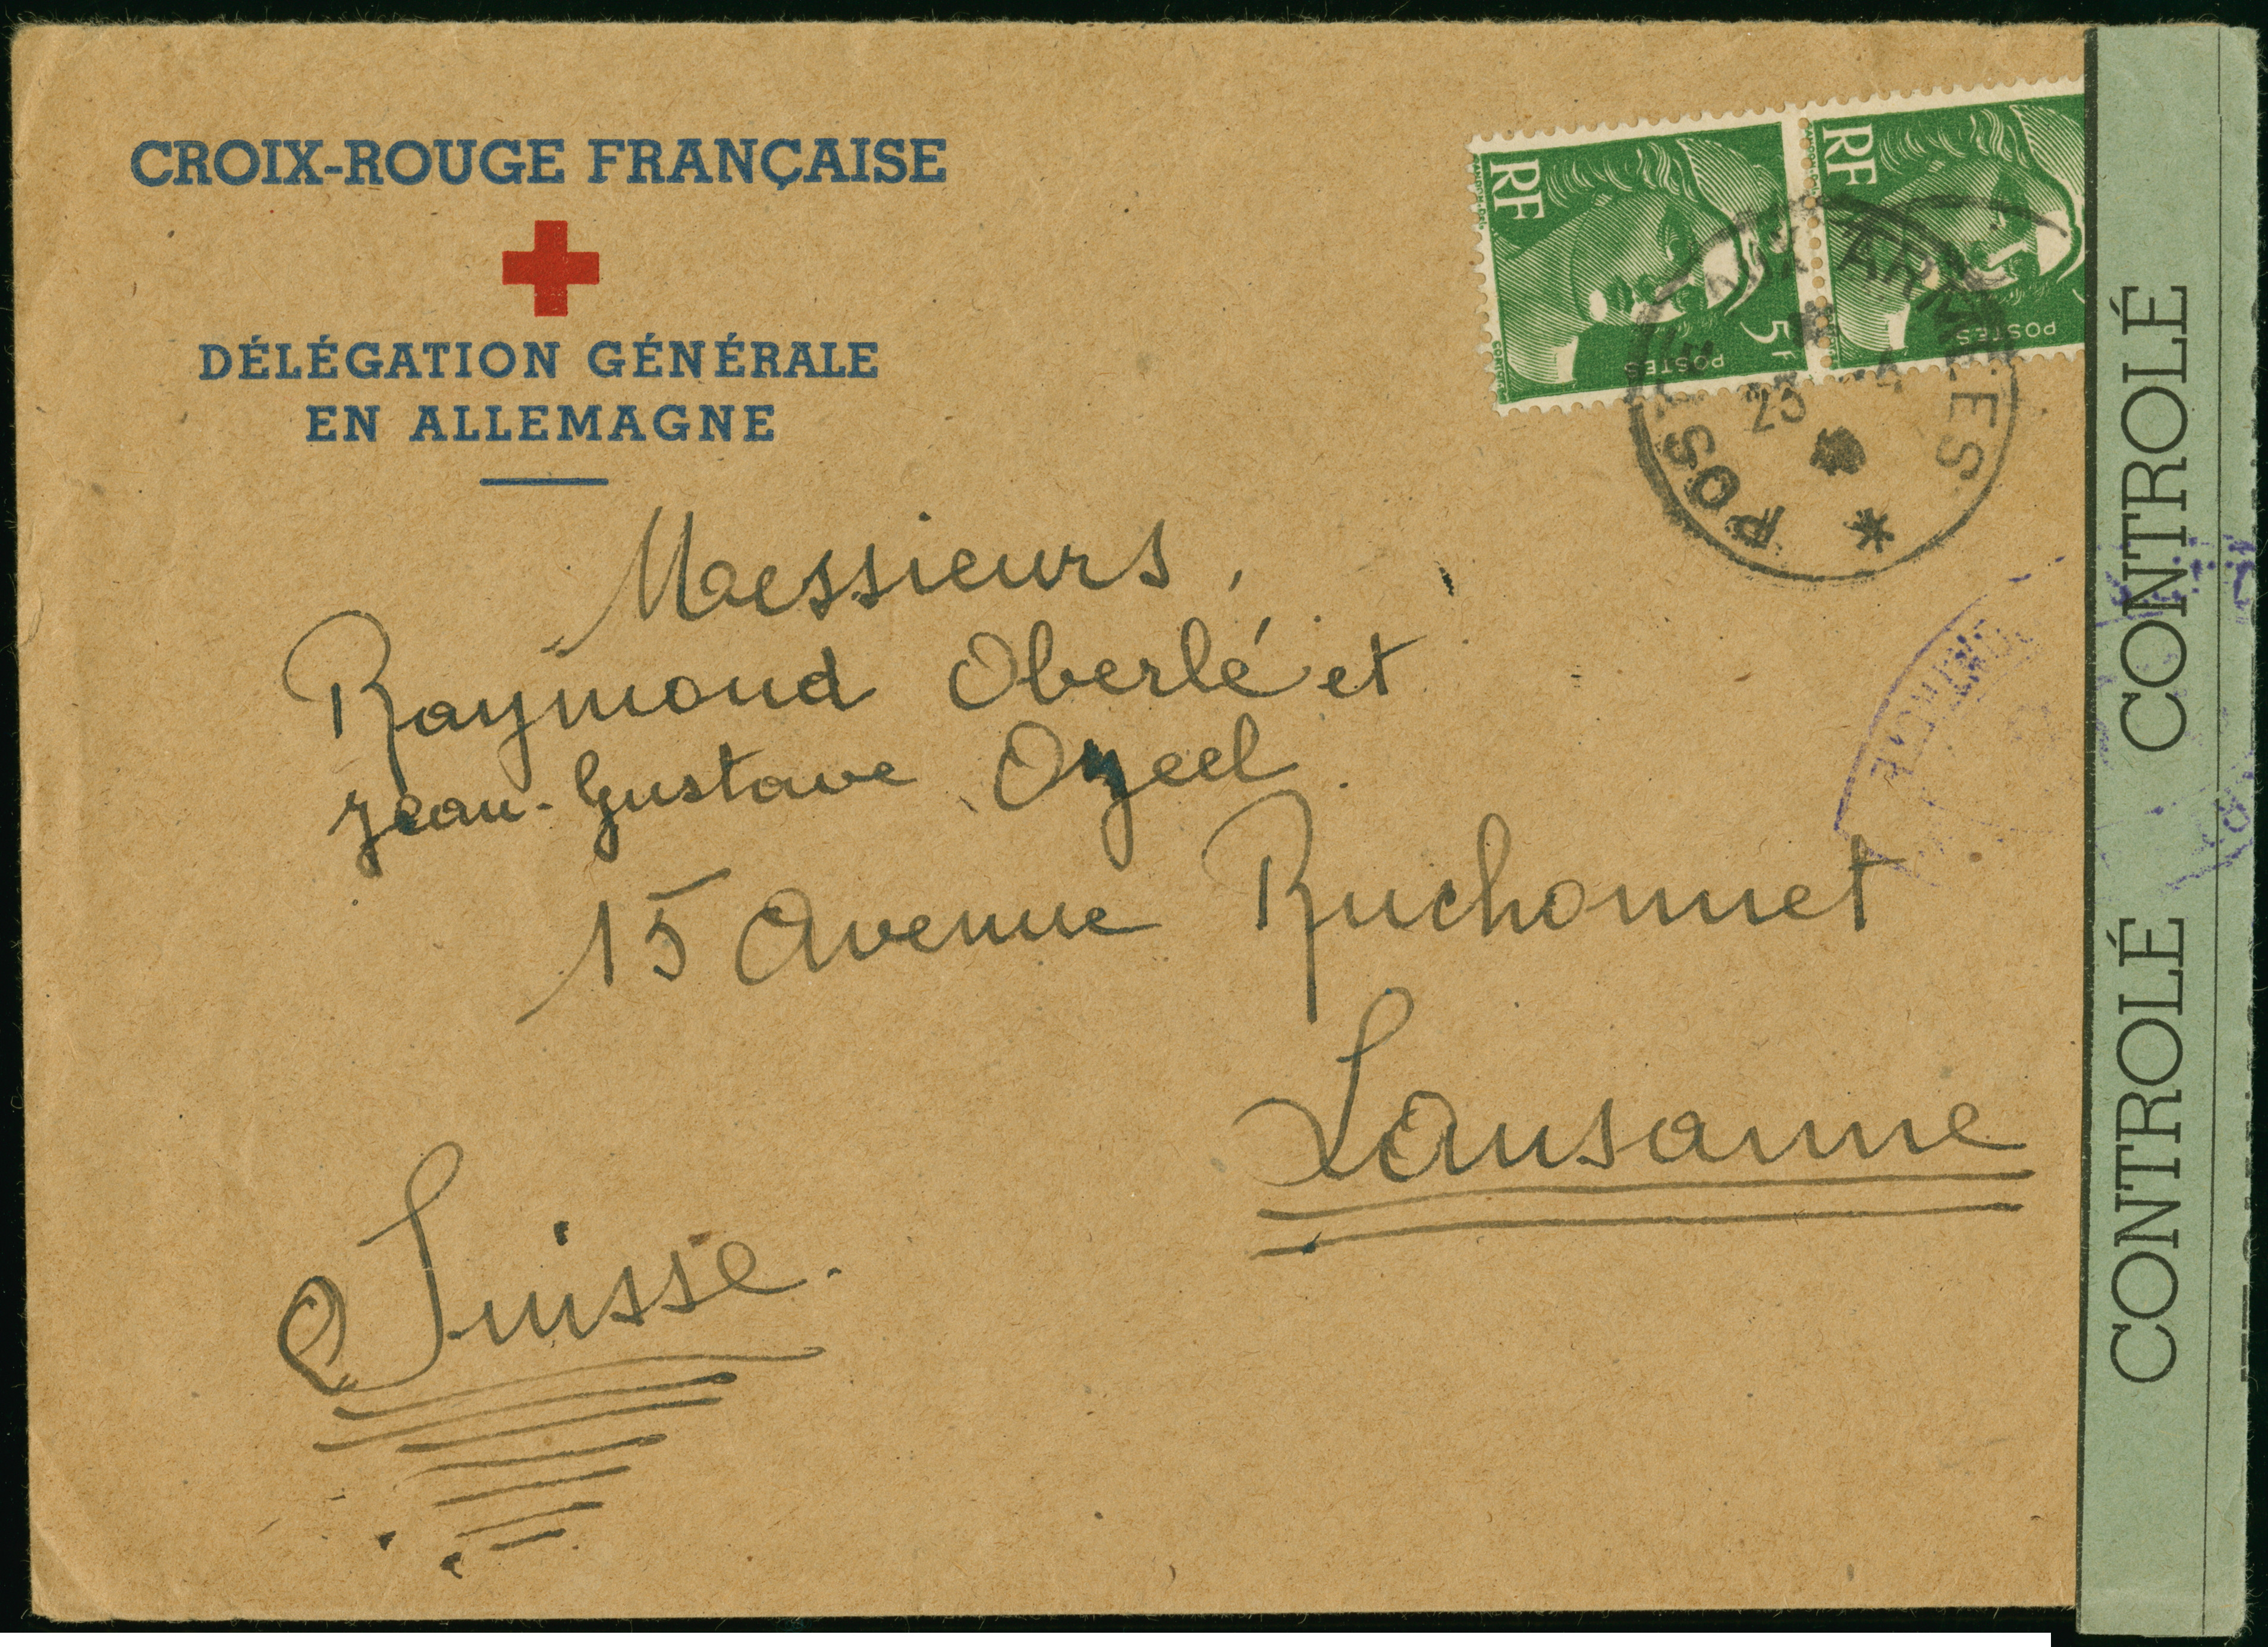 CROIX-ROUGE FRANÇAISE
DÉLÉGATION GÉNÉRALE
EN ALLEMAGNE
RF
5f
POSTES
RF
POSTES
POSTE AUX ARMÉES
23
Messieurs,
Raymond Oberlé et
Jean-Gustave Ozeel
15 Avenue Ruchonnet
Lausanne
Suisse.
CONTROLÉ CONTROLÉ